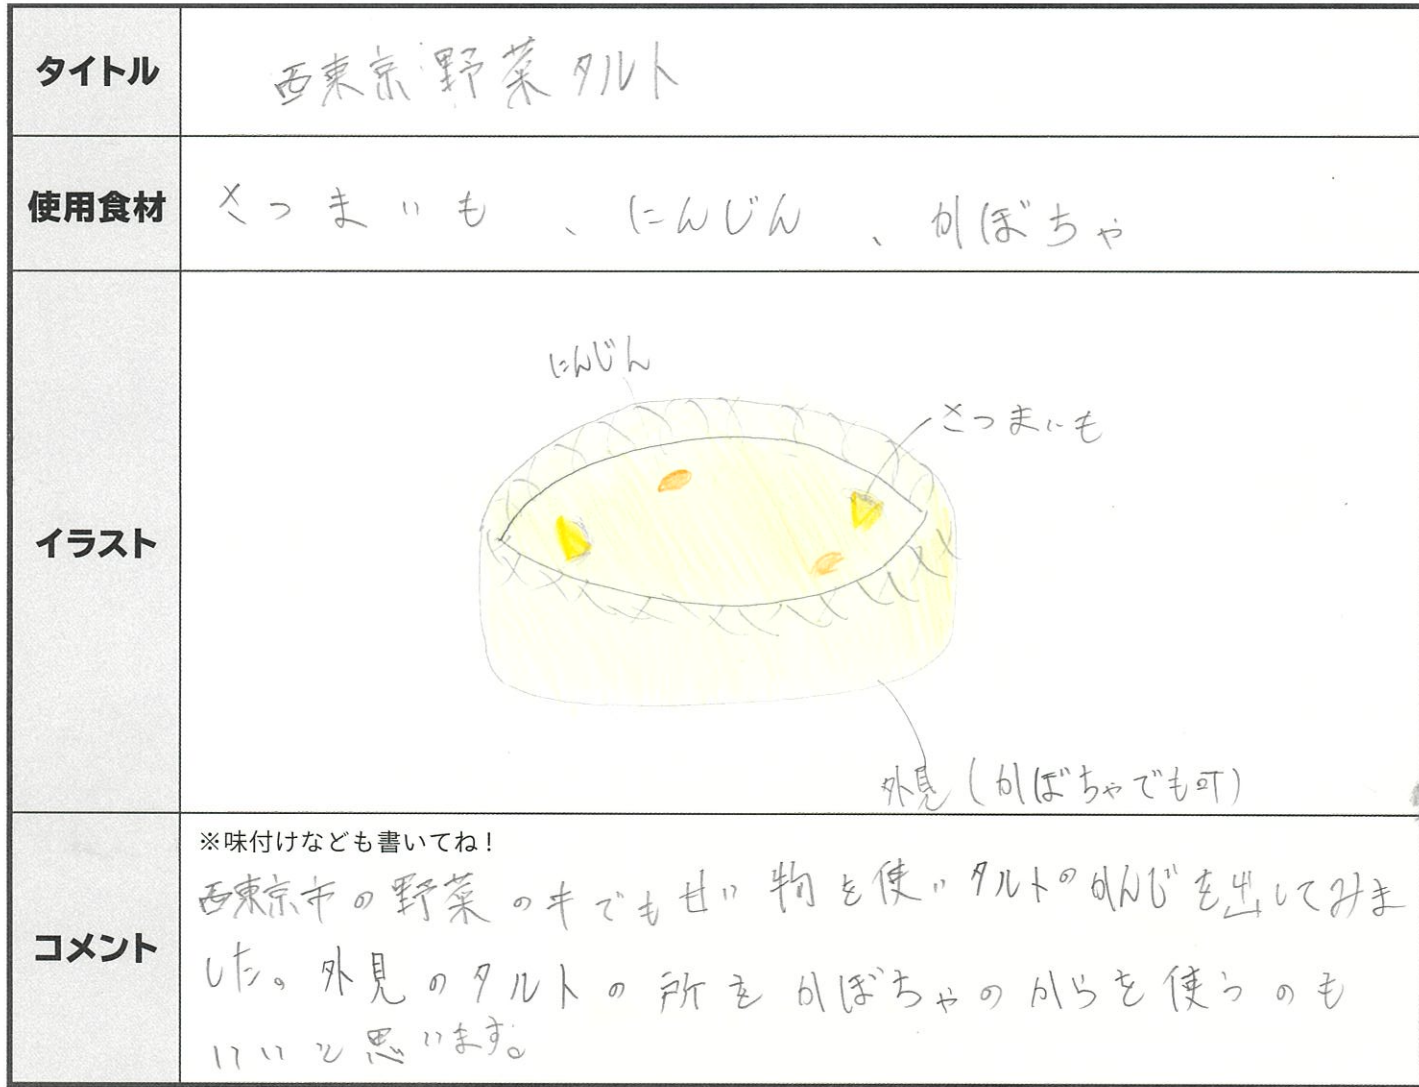 タイトル
西東京野菜タルト
使用食材
さつまいも、にんじん、かぼちゃ
イラスト
にんじん
さつまいも
外見(かぼちゃでも可)
コメント
※味付けなども書いてね!
西東京市の野菜の中でもせい物を使いタルトのかんじを出してみま
した。外見のタルトの所をかぼちゃのからを使うのも
いいと思います。